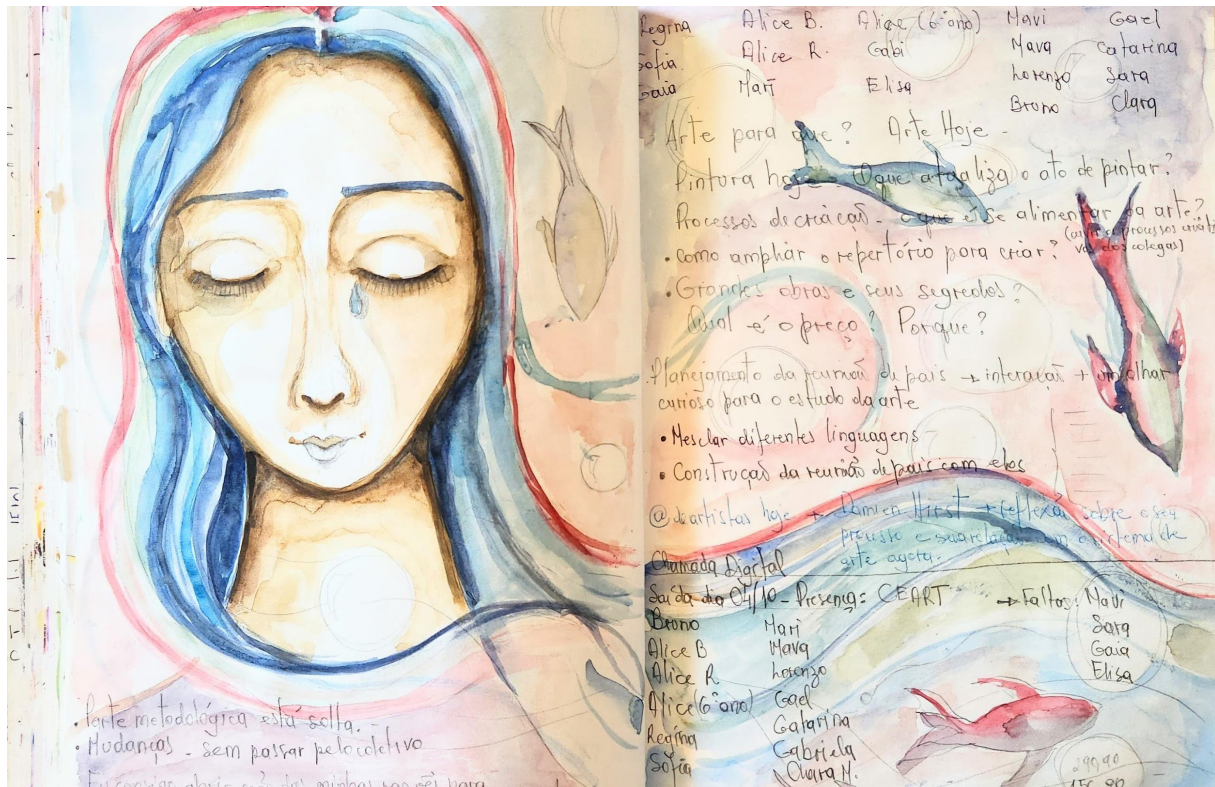 Parte metodológica está solta.
Mudanças - sem passar pelo coletivo
Regina Alice B. Alice (6º ano) Mavi Gael
Sofia Alice R. Gabi Mava Catarina
Gaia Mari Elisa Lorenzo Sara
Bruno Clara
Arte para que? Arte Hoje -
Pintura hoje - O que atualiza o ato de pintar?
Processos de criação - o que é se alimentar da arte?
dos colegas)
• como ampliar o repertório para criar?
• Grandes obras e seus segredos?
Qual é o preço? Porque?
Planejamento da reunião de pais → interação + um olhar
curioso para o estudo da arte
• Mesclar diferentes linguagens
• Construção da reunião de pais com elos
@deartistas hoje → Damien Hirst → reflexão sobre o seu
processo e sua relação com o sistema de
arte agora.
Chamada Digital
Saída dia 04/10 - Presença: CEART → Faltas: Mavi
Bruno Mari Sara
Alice B Mava Gaia
Alice R Lorenzo Elisa
Alice (6º ano) Gael
Regina Catarina
Sofia Gabriela
Clara M.
290,90